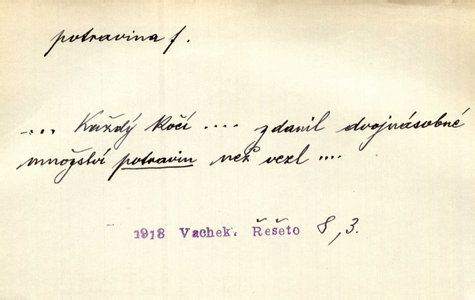 potravina f.
.... Každý kočí .... zdanil dvojnásobné
množství potravin než vezl ....
1918 Vachek. Řešeto 8,3.